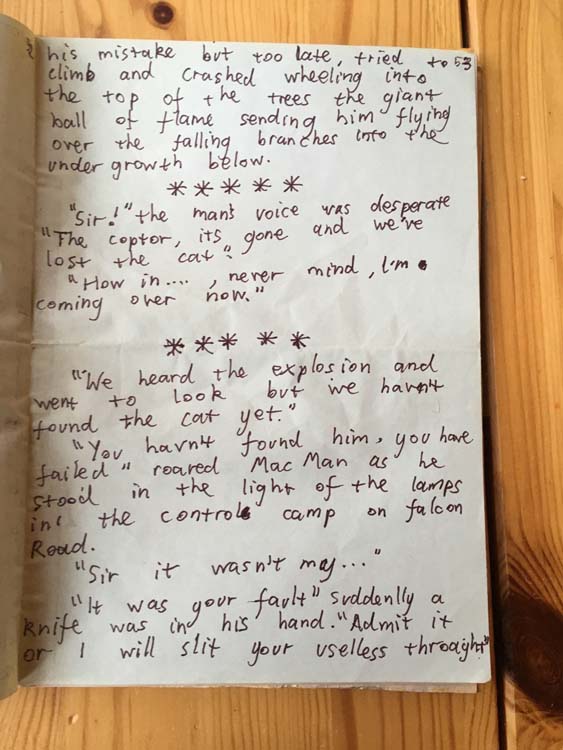 his mistake but too late, tried to 53
climb and crashed wheeling into
the top of the trees the giant
ball of flame sending him flying
over the falling branches into the
under growth below.
* * * * *
"Sir!" the man's voice was desperate
"The coptor, its gone and we've
lost the cat".
"How in...., never mind, I'm
coming over now."
* * * * *
"We heard the explosion and
went to look but we havn't
found the cat yet."
"You havn't found him, you have
failed" roared Mac Man as he
stood in the light of the lamps
in the control camp on falcon
Road.
"Sir it wasn't my..."
"It was your fault" suddenlly a
knife was in his hand. "Admit it
or I will slit your uselless throaght"